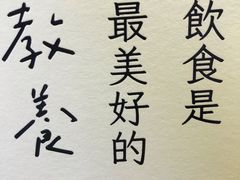 飲食是
最美好的
教養